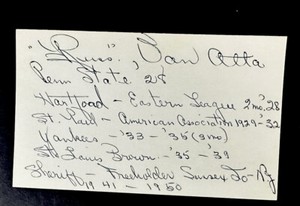 "Russ" Van Atta
Penn State '28
Hartford - Eastern League 2 mo. '28
St. Paul - American Association 1929-'32
Yankees - '33 - '35 (3 mo)
St Louis Brown - '35 - '39
Sheriff - Freeholder Sussex Co - NJ
1941 - 1950